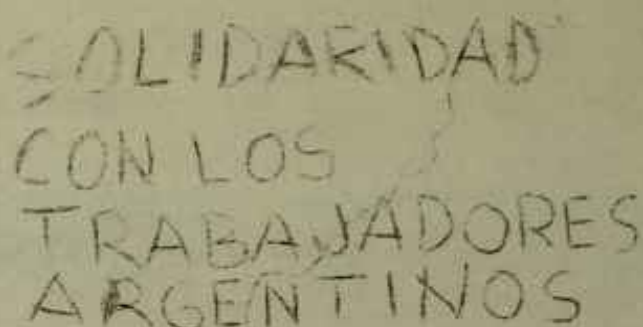 SOLIDARIDAD
CON LOS
TRABAJADORES
ARGENTINOS